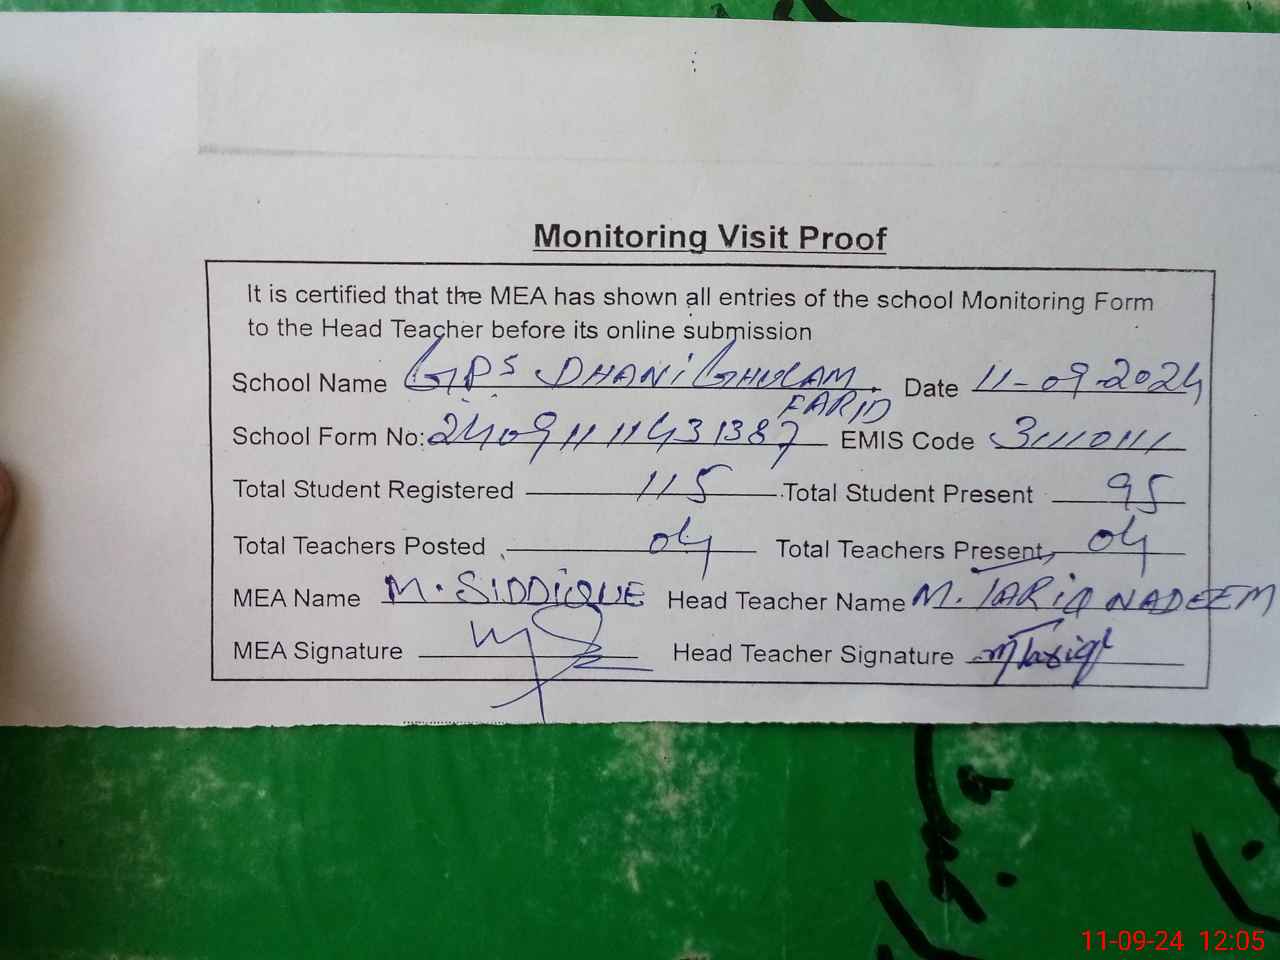 Monitoring Visit Proof
It is certified that the MEA has shown all entries of the school Monitoring Form
to the Head Teacher before its online submission
School Name GPS DHANi GHULAM FARID Date 11-09-2024
School Form No: 24091111431387 EMIS Code 31110111
Total Student Registered 115 Total Student Present 95
Total Teachers Posted 04 Total Teachers Present 04
MEA Name M. SIDDiQUE Head Teacher Name M. TARiQ NADEEM
MEA Signature Head Teacher Signature
11-09-24 12:05